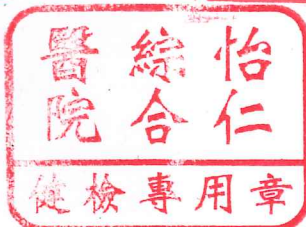 怡仁
綜合
醫院
健檢專用章